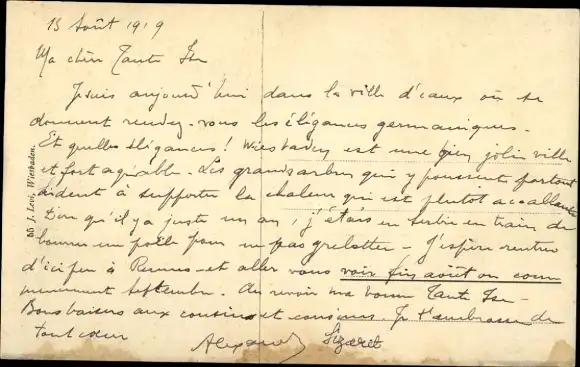 13 Août 1919
Ma chère Tante
Je suis aujourd'hui dans la ville d'eaux où se
donnent rendez-vous les élégances germaniques.
Et quelles élégances! Wiesbaden est une bien jolie ville
et fort agréable. Les grands arbres qui y poussent partout
aident à supporter la chaleur qui est plutôt accablante
Dire qu'il y a juste un an, j'étais en Serbie en train de
bourrer un poêle pour ne pas grelotter - J'espère rentrer
d'ici peu à Rennes et aller vous voir fin août ou com
mencement Septembre. Au revoir ma bonne Tante
Bons baisers aux cousins et cousines. Je t'embrasse de
tout cœur
55 J. Levi, Wiesbaden.